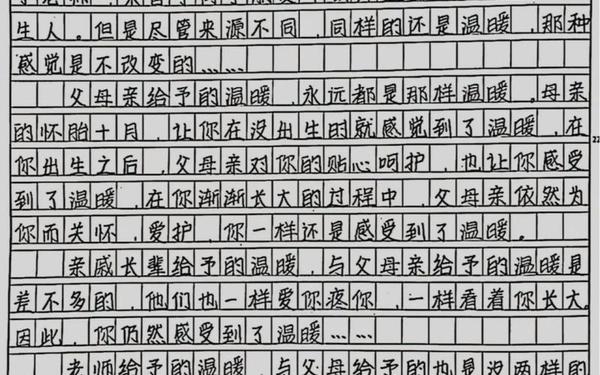 生人。但是尽管来源不同,同样的还是温暖,那种
感觉是不改变的……
父母亲给予的温暖,永远都是那样温暖。母亲
的怀胎十月,让你在没出生时就感觉到了温暖,在
你出生之后,父母亲对你的贴心呵护,也让你感受
到了温暖,在你渐渐长大的过程中,父母亲依然为
你而关怀,爱护,你一样还是感受到了温暖。
亲戚长辈给予的温暖,与父母亲给予的温暖是
差不多的,他们也一样爱你疼你,一样看着你长大。
因此,你仍然感受到了温暖……
老师给予的温暖,与父母给予的也是没两样的
22